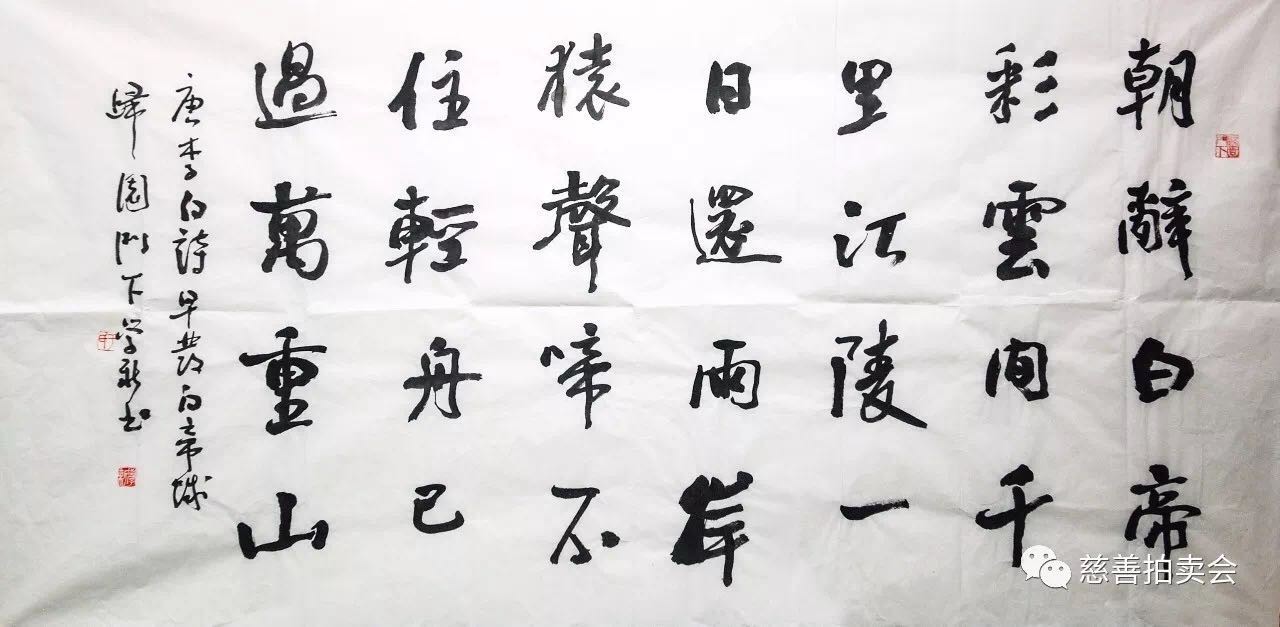 朝辭白帝
彩雲間千
里江陵一
日還兩岸
猿聲啼不
住輕舟已
過萬重山
唐李白詩早發白帝城
歸園門下学新书
慈善拍卖会